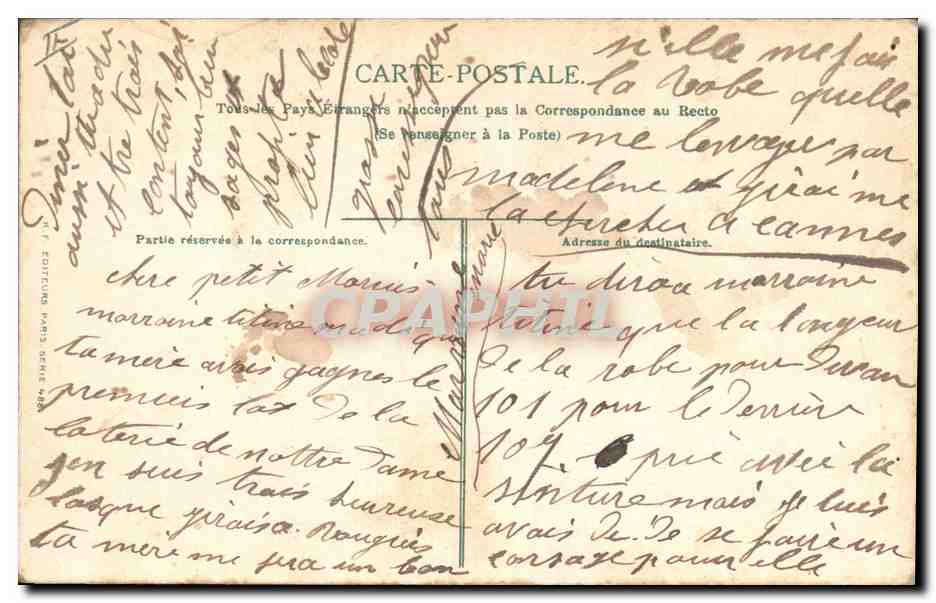 CARTE-POSTALE.
Tous les Pays Étrangers n'acceptent pas la Correspondance au Recto
(Se renseigner à la Poste)
Partie réservée à la correspondance.
Adresse du destinataire.
EDITEURS PARIS. SERIE
CPAPHIL
chere petit Marius
marraine titine
ta mère avais gagnes le
premiers lot De la
loterie de nottre Dame
gen suis trais heureuse
lorsque girais a Rougiers
ta mère me fera un bon
tu diraa marraine
titine que la longeur
De la robe pour Devan
101 pour le Derrière
107 prie avec la
sinture mais je luis
avais De De se faire un
corsage pour elle
s'i elle me fais
la Robe quelle
me lenvoyer par
madeleine et girai me
la chercher a cannes
et tre trais
contents,
toujour bien
sages et
profite
bien
grosse
caresse pour
tous
Marraine
marie